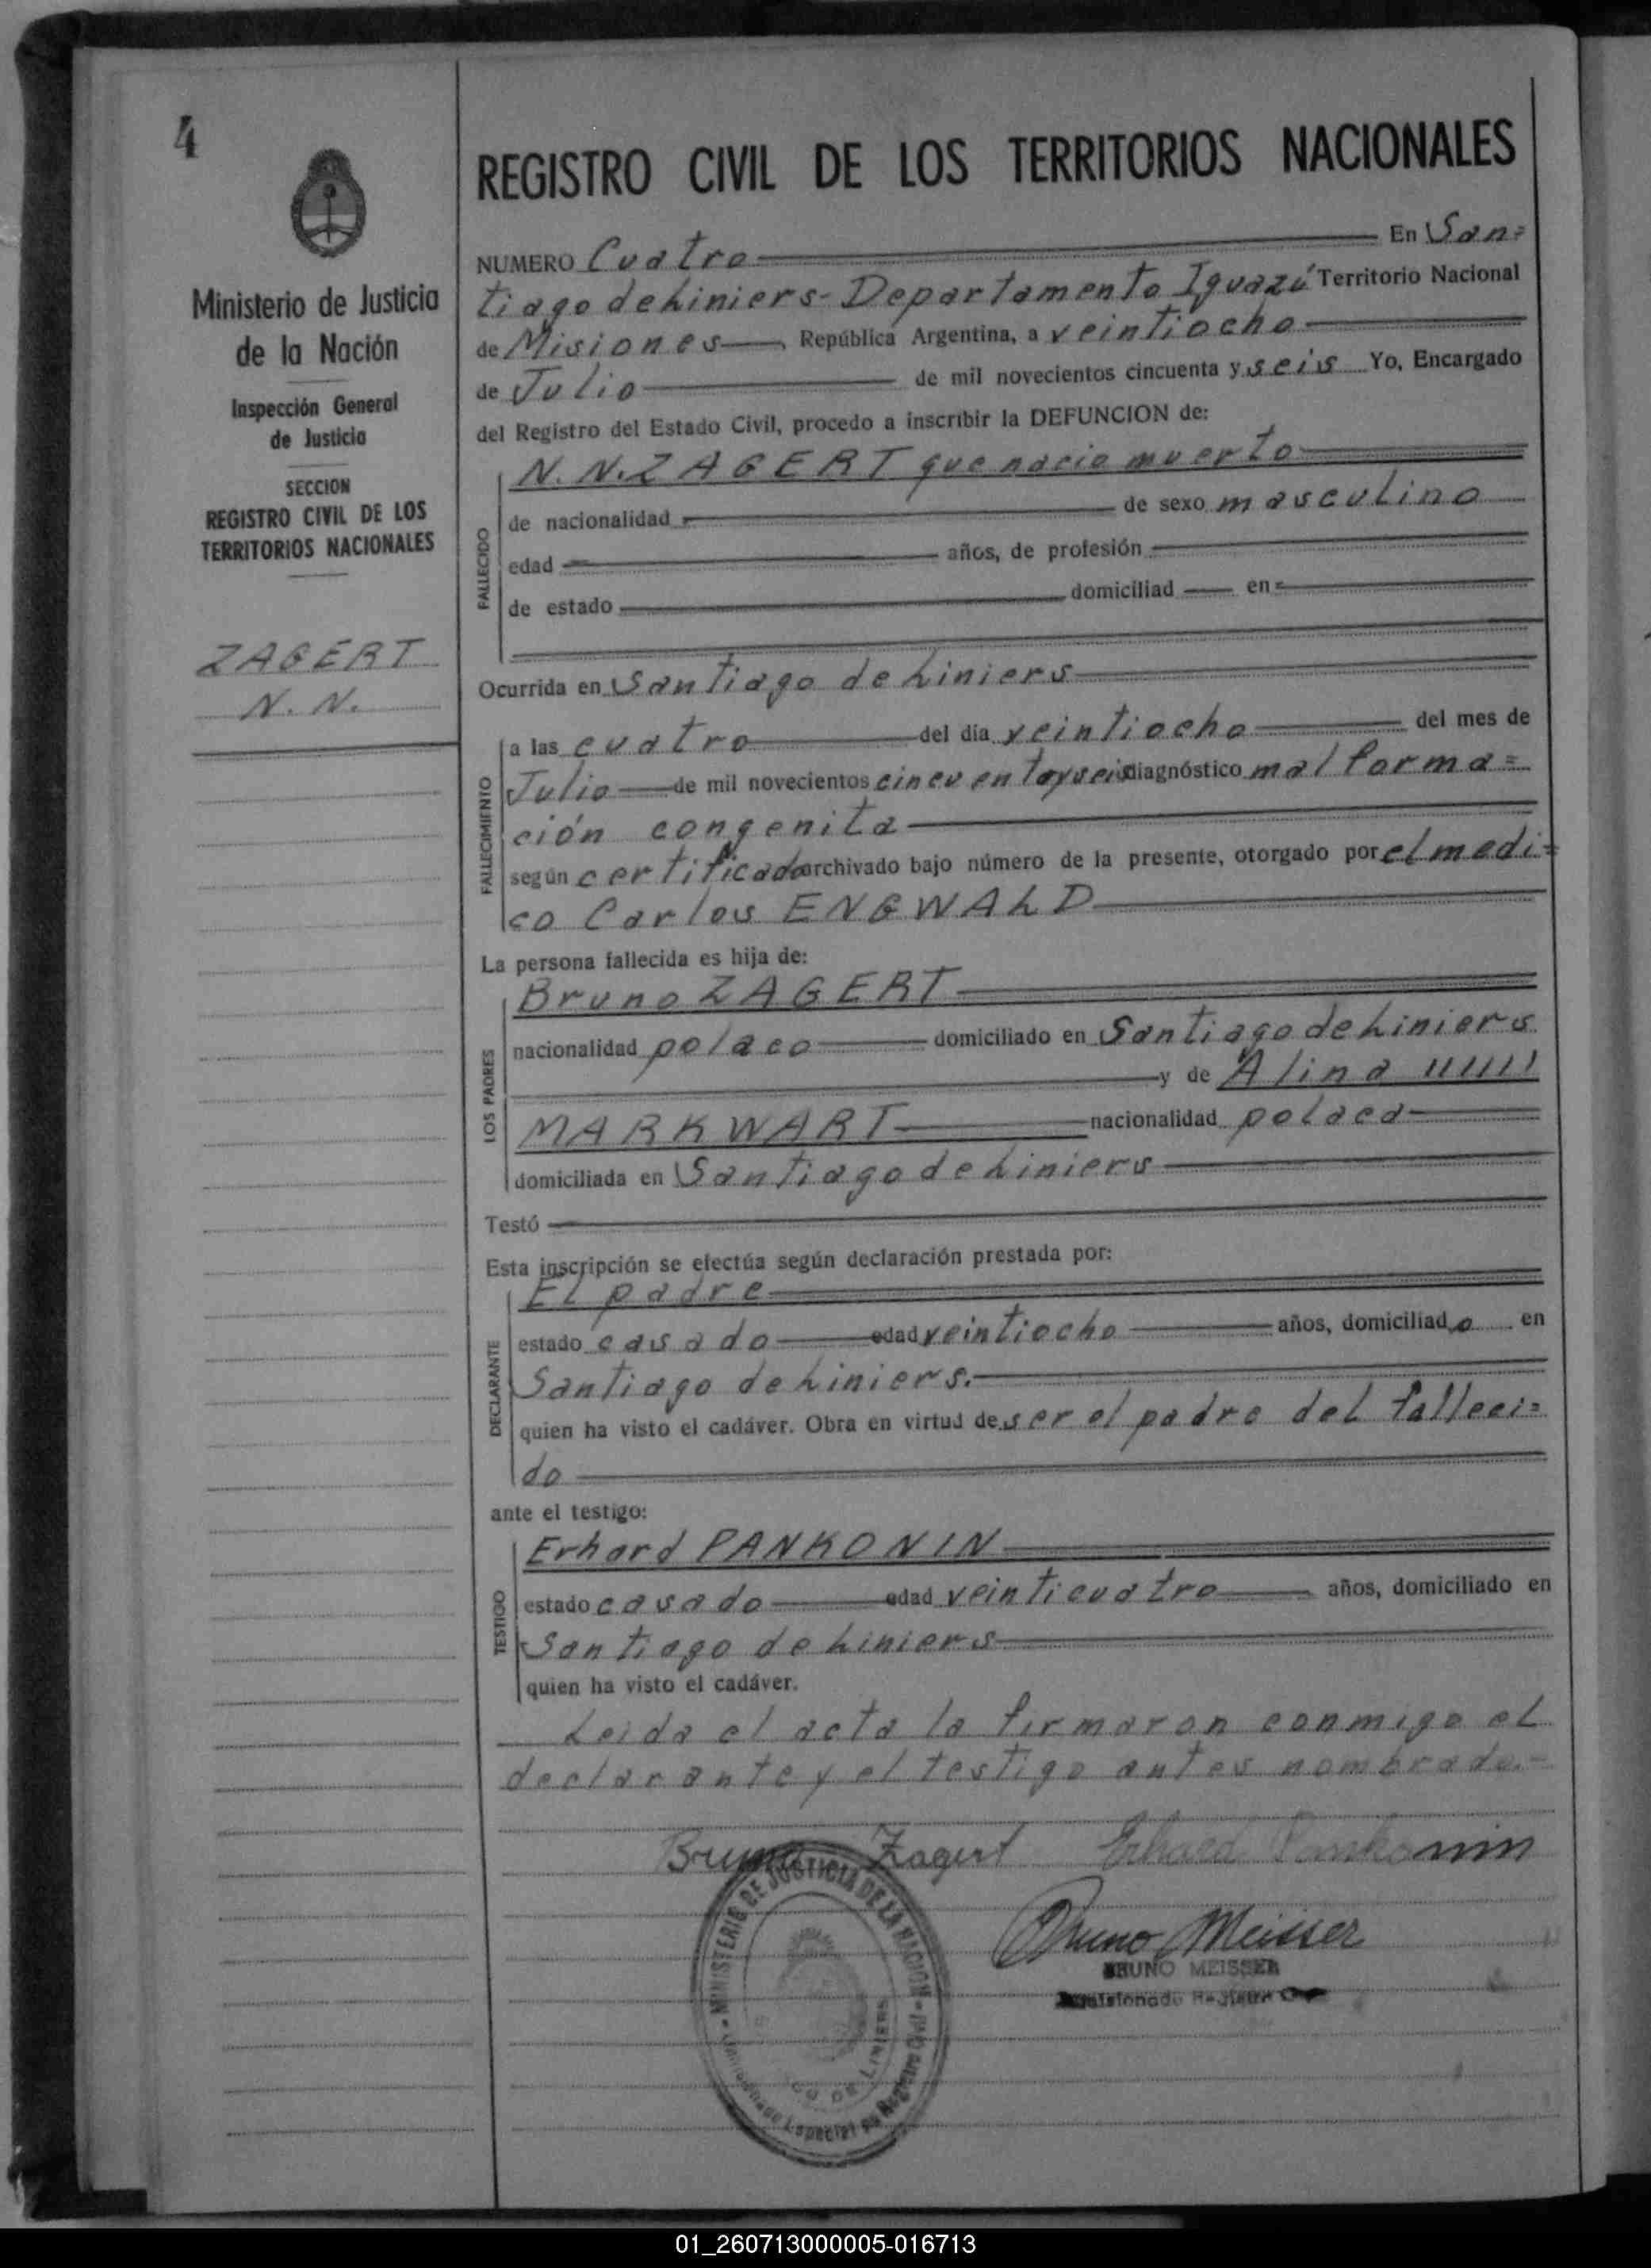 4
Ministerio de Justicia
de la Nación
Inspección General
de Justicia
SECCION
REGISTRO CIVIL DE LOS
TERRITORIOS NACIONALES
ZAGERT
N. N.
REGISTRO CIVIL DE LOS TERRITORIOS NACIONALES
NUMERO Cuatro En San=
tiago de Liniers- Departamento Iguazú Territorio Nacional
de Misiones República Argentina, a veintiocho
de Julio de mil novecientos cincuenta y seis Yo, Encargado
del Registro del Estado Civil, procedo a inscribir la DEFUNCION de:
N. N. ZAGERT que nacio muerto
FALLECIDO
de nacionalidad de sexo masculino
edad años, de profesión
de estado domiciliad en
Ocurrida en Santiago de Liniers
FALLECIMIENTO
a las cuatro del día veintiocho del mes de
Julio de mil novecientos cincuentayseis diagnóstico mal forma=
ción congenita
según certificado archivado bajo número de la presente, otorgado por el medi=
co Carlos ENGWALD
La persona fallecida es hija de:
LOS PADRES
Bruno ZAGERT
nacionalidad polaco domiciliado en Santiago de Liniers
y de Alina
MARKWART nacionalidad polaca
domiciliada en Santiago de Liniers
Testó
Esta inscripción se efectúa según declaración prestada por:
DECLARANTE
El padre
estado casado edad veintiocho años, domiciliado en
Santiago de Liniers.
quien ha visto el cadáver. Obra en virtud de ser el padre del falleci=
do
ante el testigo:
TESTIGO
Erhard PANKONIN
estado casado edad veinticuatro años, domiciliado en
Santiago de Liniers
quien ha visto el cadáver.
Leida el acta la firmaron conmigo el
declarante y el testigo antes nombrado.-
Bruno Zagert Erhard Pankonin
MINISTERIO DE JUSTICIA DE LA NACION
Bruno Meisser
BRUNO MEISSER
01_260713000005-016713